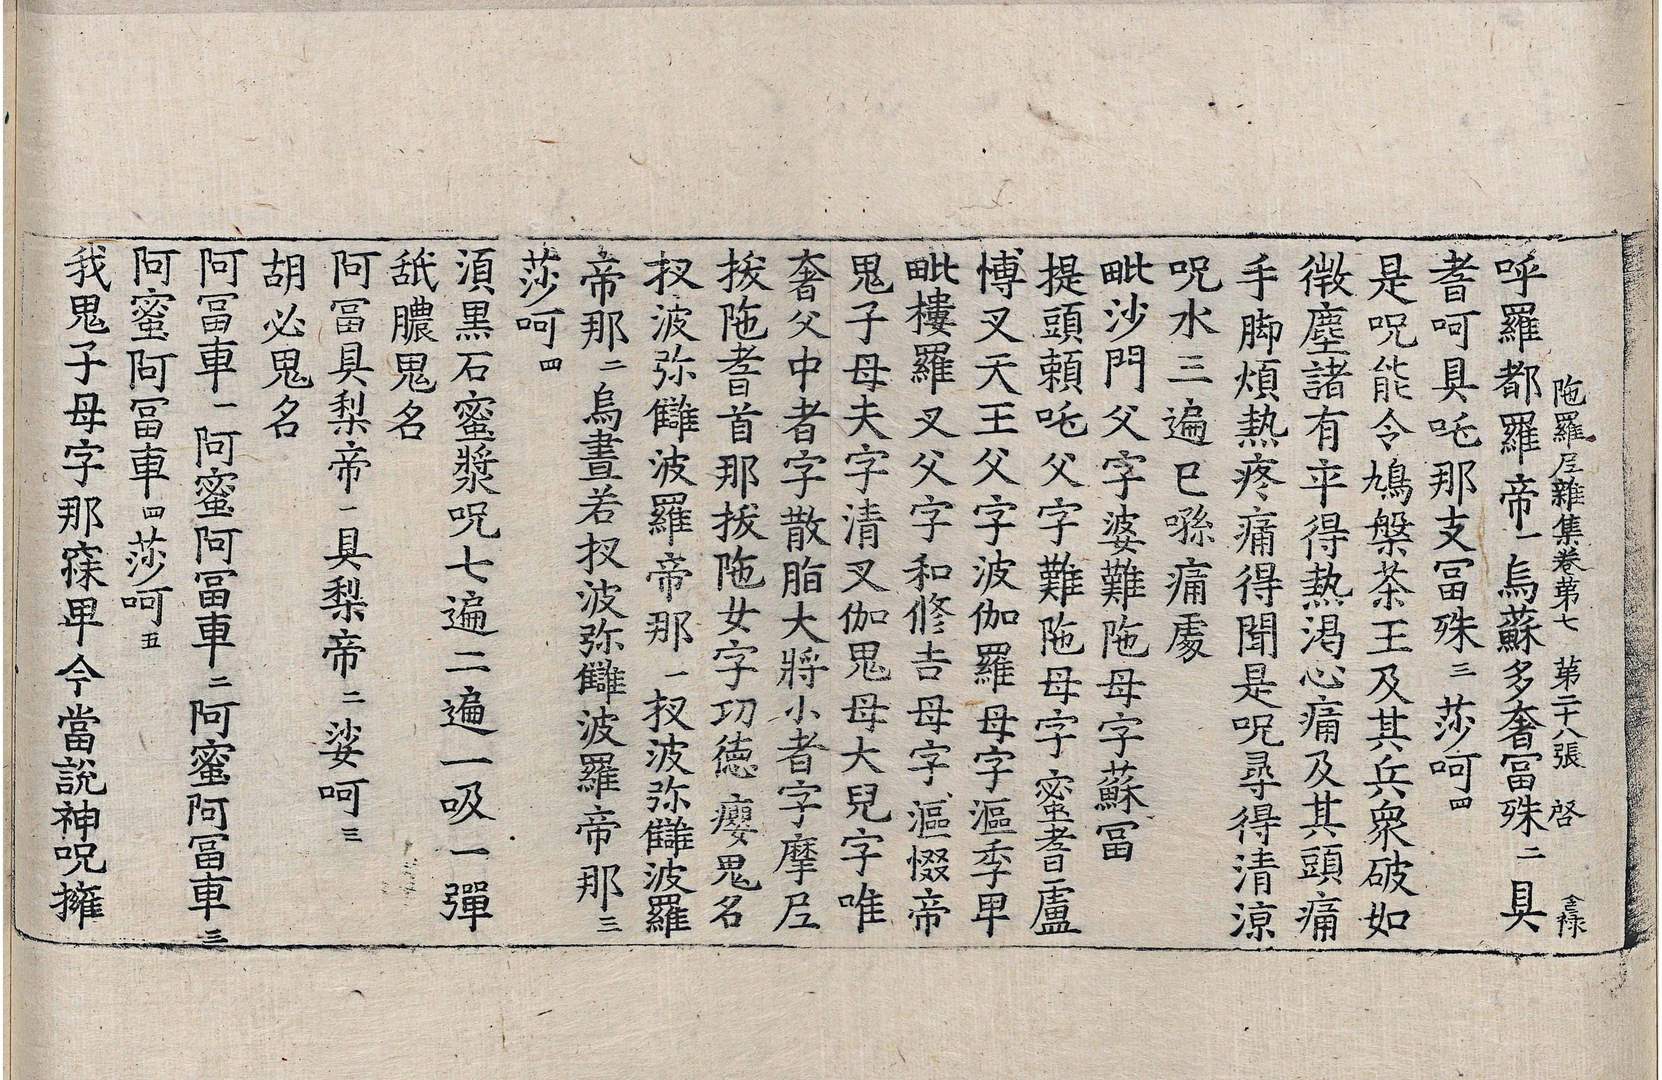 陁羅尼雜集卷第七 第二十八張 啓 金祿
呼羅都羅帝一烏蘇多奢富殊二具
耆呵具吒那支富殊三莎呵四
是呪能令鳩槃茶王及其兵衆破如
微塵諸有卒得熱渴心痛及其頭痛
手脚煩熱疼痛得聞是呪尋得清涼
呪水三遍已噀痛處
毗沙門父字婆難陁母字蘇冨
提頭頼吒父字難陁母字蜜耆盧
愽叉天王父字波伽羅母字漚季畀
毗樓羅叉父字和修吉母字漚惙帝
鬼子母夫字清叉伽鬼母大兒字唯
奢父中者字散脂大將小者字摩尼
拔陁耆首那拔陁女字功德癭鬼名
扠波弥讎波羅帝那一扠波弥讎波羅
帝那二烏晝若扠波弥讎波羅帝那三
莎呵四
須黒石蜜漿呪七遍二遍一吸一彈
舐膿鬼名
阿冨具梨帝一具梨帝二娑呵三
胡必鬼名
阿冨車一阿蜜阿冨車二阿蜜阿冨車三
阿蜜阿冨車四莎呵五
我鬼子母字那寐畀今當說神呪擁